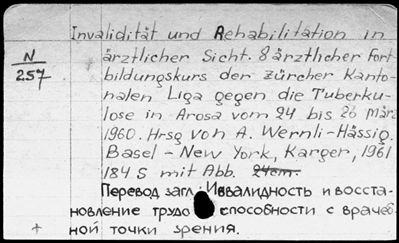 Invalidität und Rehabilitation in
N
257
ärztlicher Sicht. 8 ärztlicher Fort
bildungskurs der zürcher Kanto-
nalen Liga gegen die Tuberku-
lose in Arosa vom 24 bis 26 März
1960. Hrsg von A. Wernli-Hässig.
Basel - New York, Karger, 1961
184 S mit Abb. 24cm.
Перевод загл: Инвалидность и восста-
новление трудоспособности с врачеб-
+ ной точки зрения.